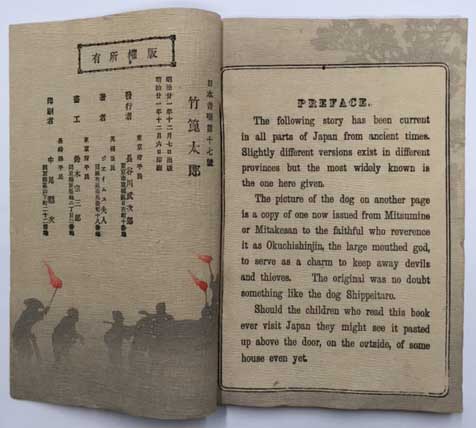 版權所有
日本昔噺第十七號
竹篦太郎
明治廿一年十二月七日出版
明治廿一年十二月六日印刷
發行者
東京府平民
長谷川武次郎
著者
ゼイムス夫人
畫工
東京府平民
鈴木宗三郎
印刷者
長崎縣平民
中尾黙次
PREFACE.
The following story has been current
in all parts of Japan from ancient times.
Slightly different versions exist in different
provinces but the most widely known is
the one here given.
The picture of the dog on another page
is a copy of one now issued from Mitsumine
or Mitakesan to the faithful who reverence
it as Okuchishinjin, the large mouthed god,
to serve as a charm to keep away devils
and thieves. The original was no doubt
something like the dog Shippeitaro.
Should the children who read this book
ever visit Japan they might see it pasted
up above the door, on the outside, of some
house even yet.